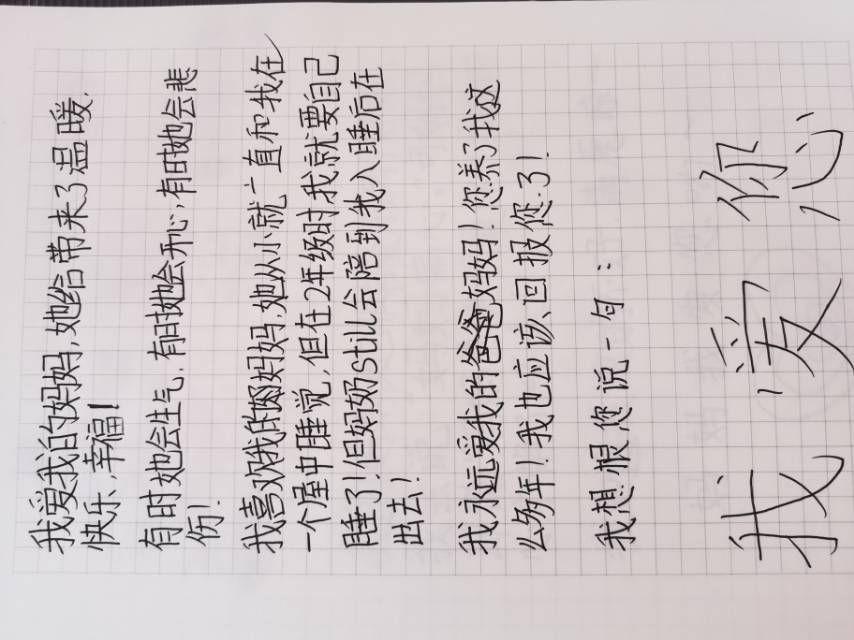 我爱我的妈妈，她给带来了温暖，
快乐，幸福！
有时她会生气，有时她会开心，有时她会悲
伤！
我喜欢我的妈妈，她从小就一直和我在
一个屋中睡觉，但在2年级时我就要自己
睡了！但妈妈still会陪到我入睡后在
出去！
我永远爱我的爸爸妈妈！您养了我这
么多年！我也应该回报您了！
我想跟您说一句：
我爱您